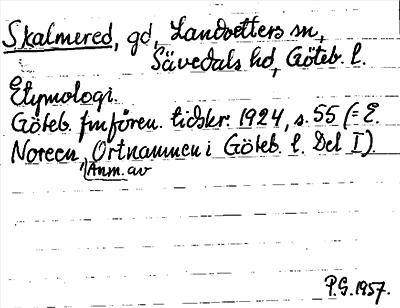 Skalmered, gd, Landvetters sn,
Sävedals hd, Göteb. l.
Etymologi.
Göteb. fmfören. tidskr. 1924, s. 55 (= E.
Noreen, Ortnamnen i Göteb. l. Del I).
Anm. av
P.G. 1957.